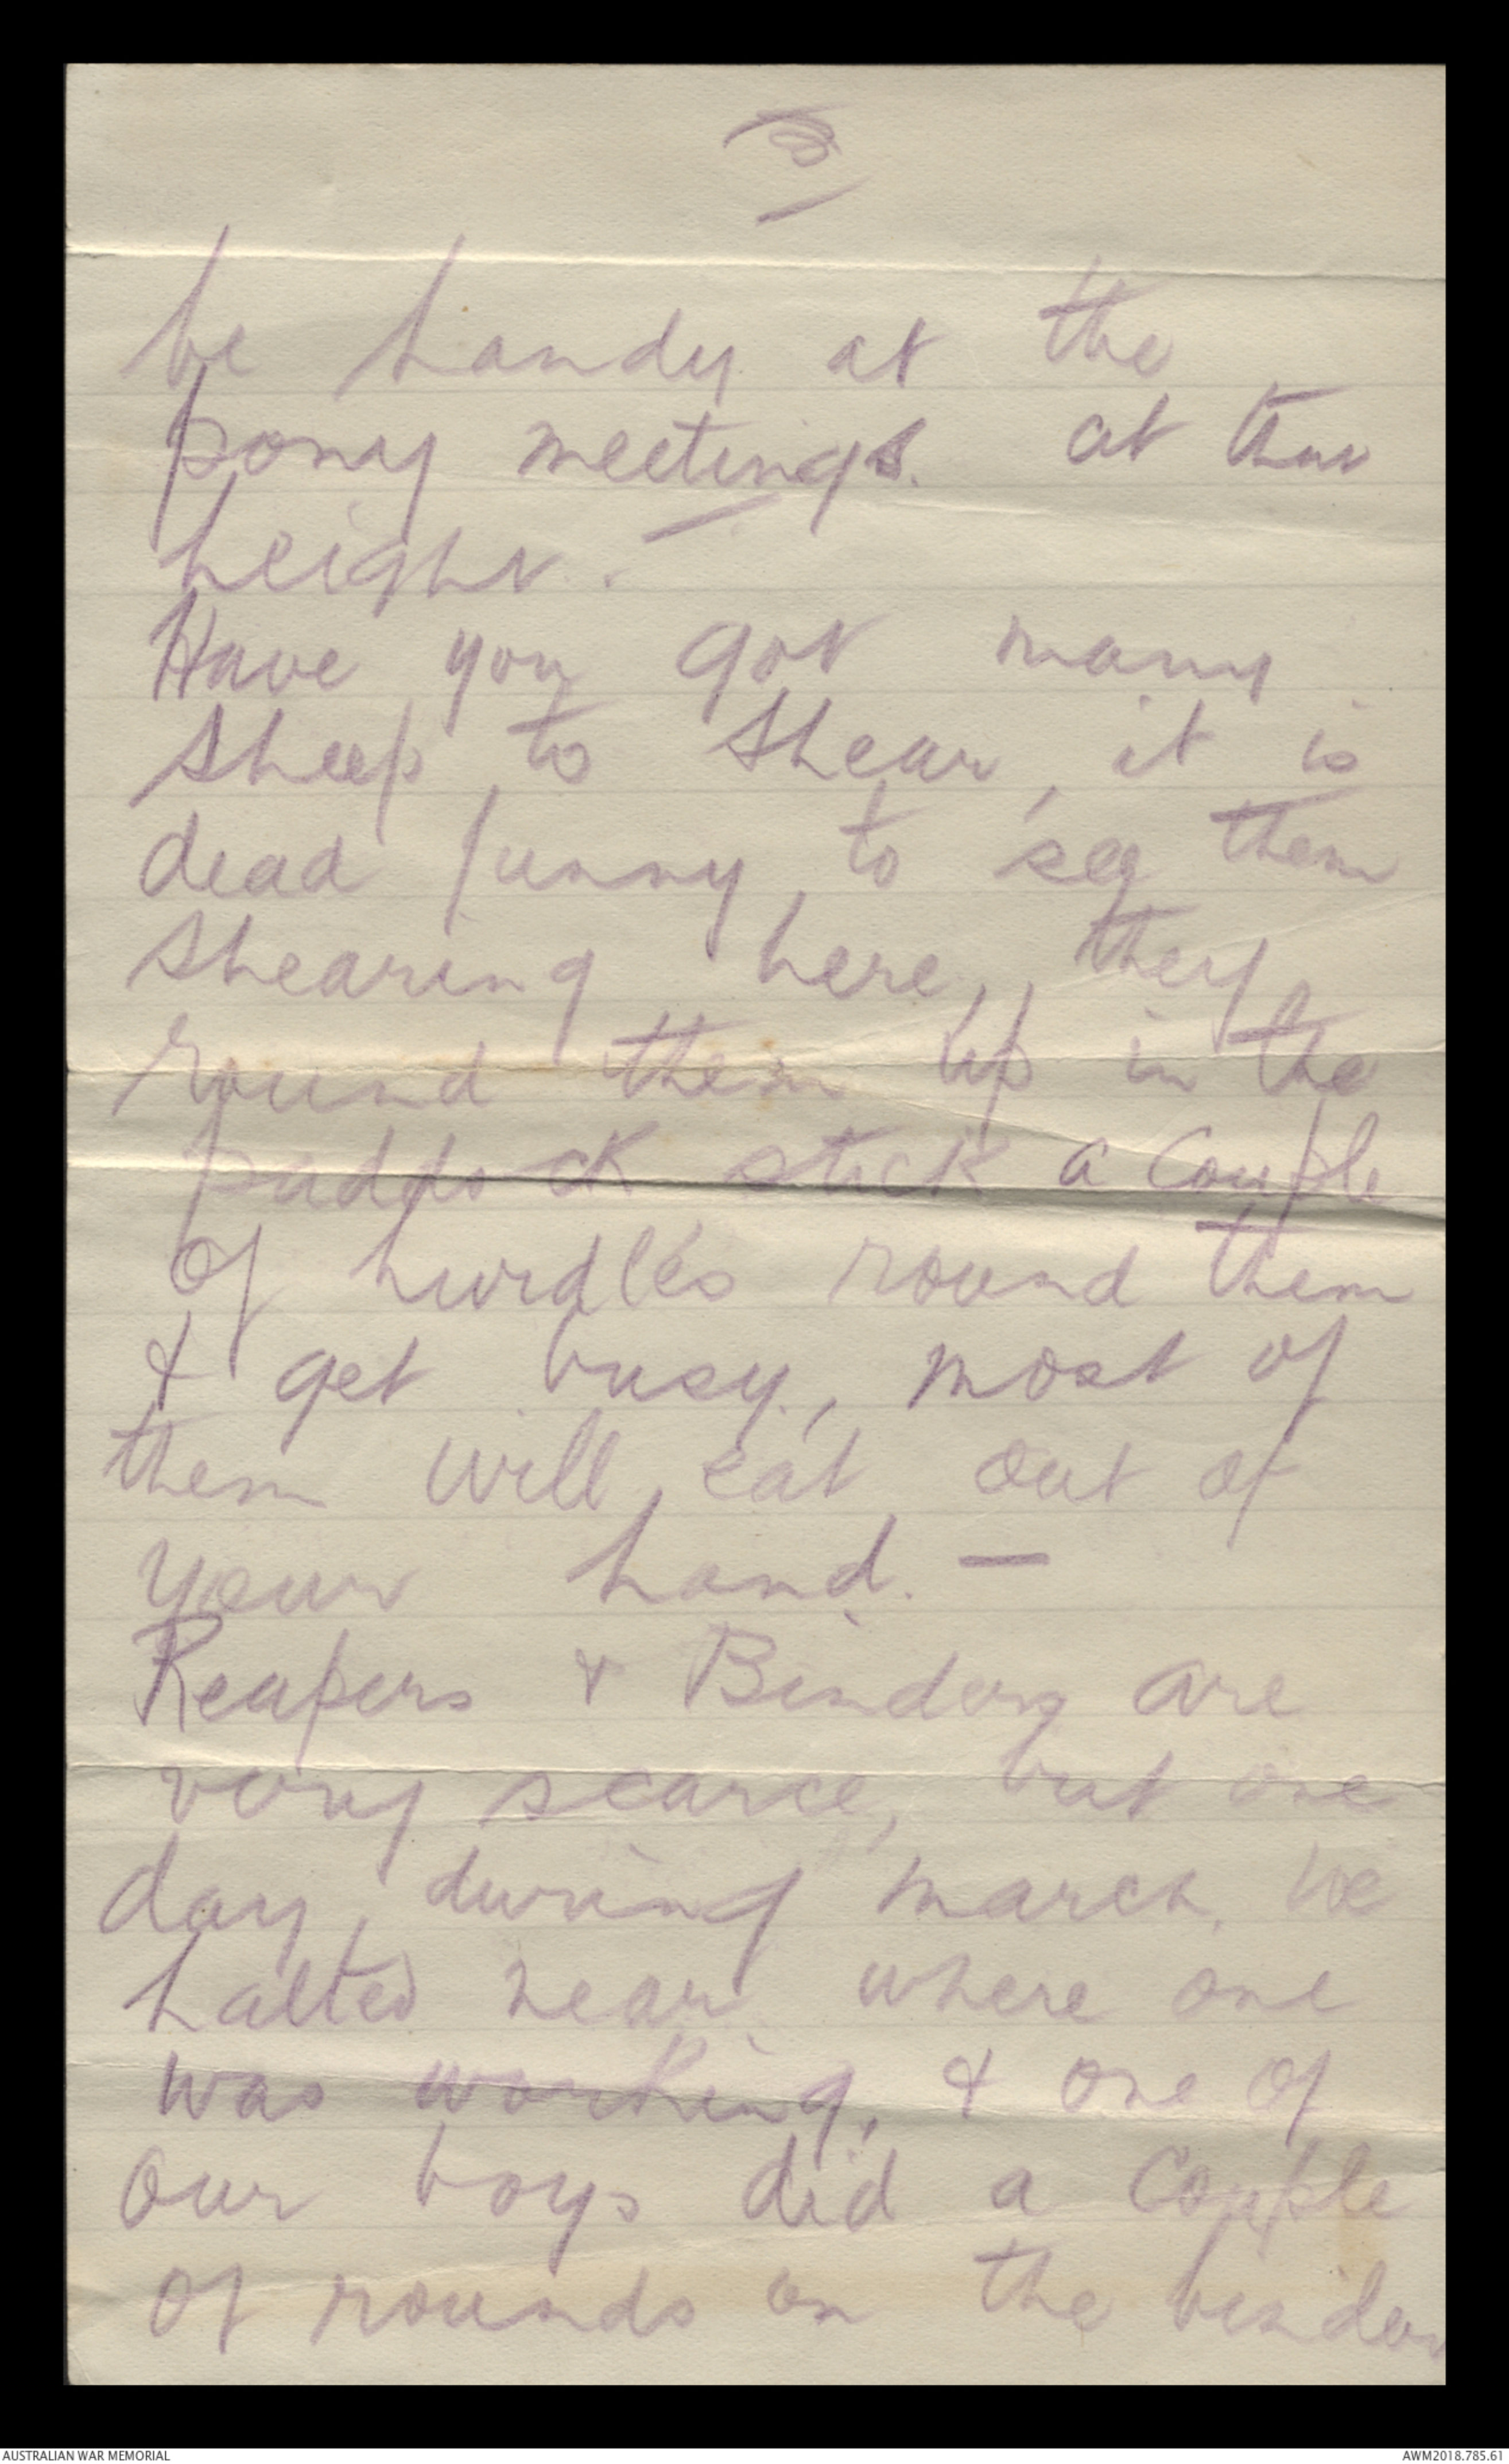 3
be handy at the
pony meetings. at that
height. —
Have you got many
sheep to shear, it is
dead funny to see them
shearing here, they
round them up in the
paddock stick a couple
of hurdles round them
& get busy, most of
them will eat out of
your hand. —
Reapers & Binders are
very scarce, but one
day, during march, we
halted near where one
was working, & one of
our boys did a couple
of rounds on the binder
AUSTRALIAN WAR MEMORIAL
AWM2018.785.61